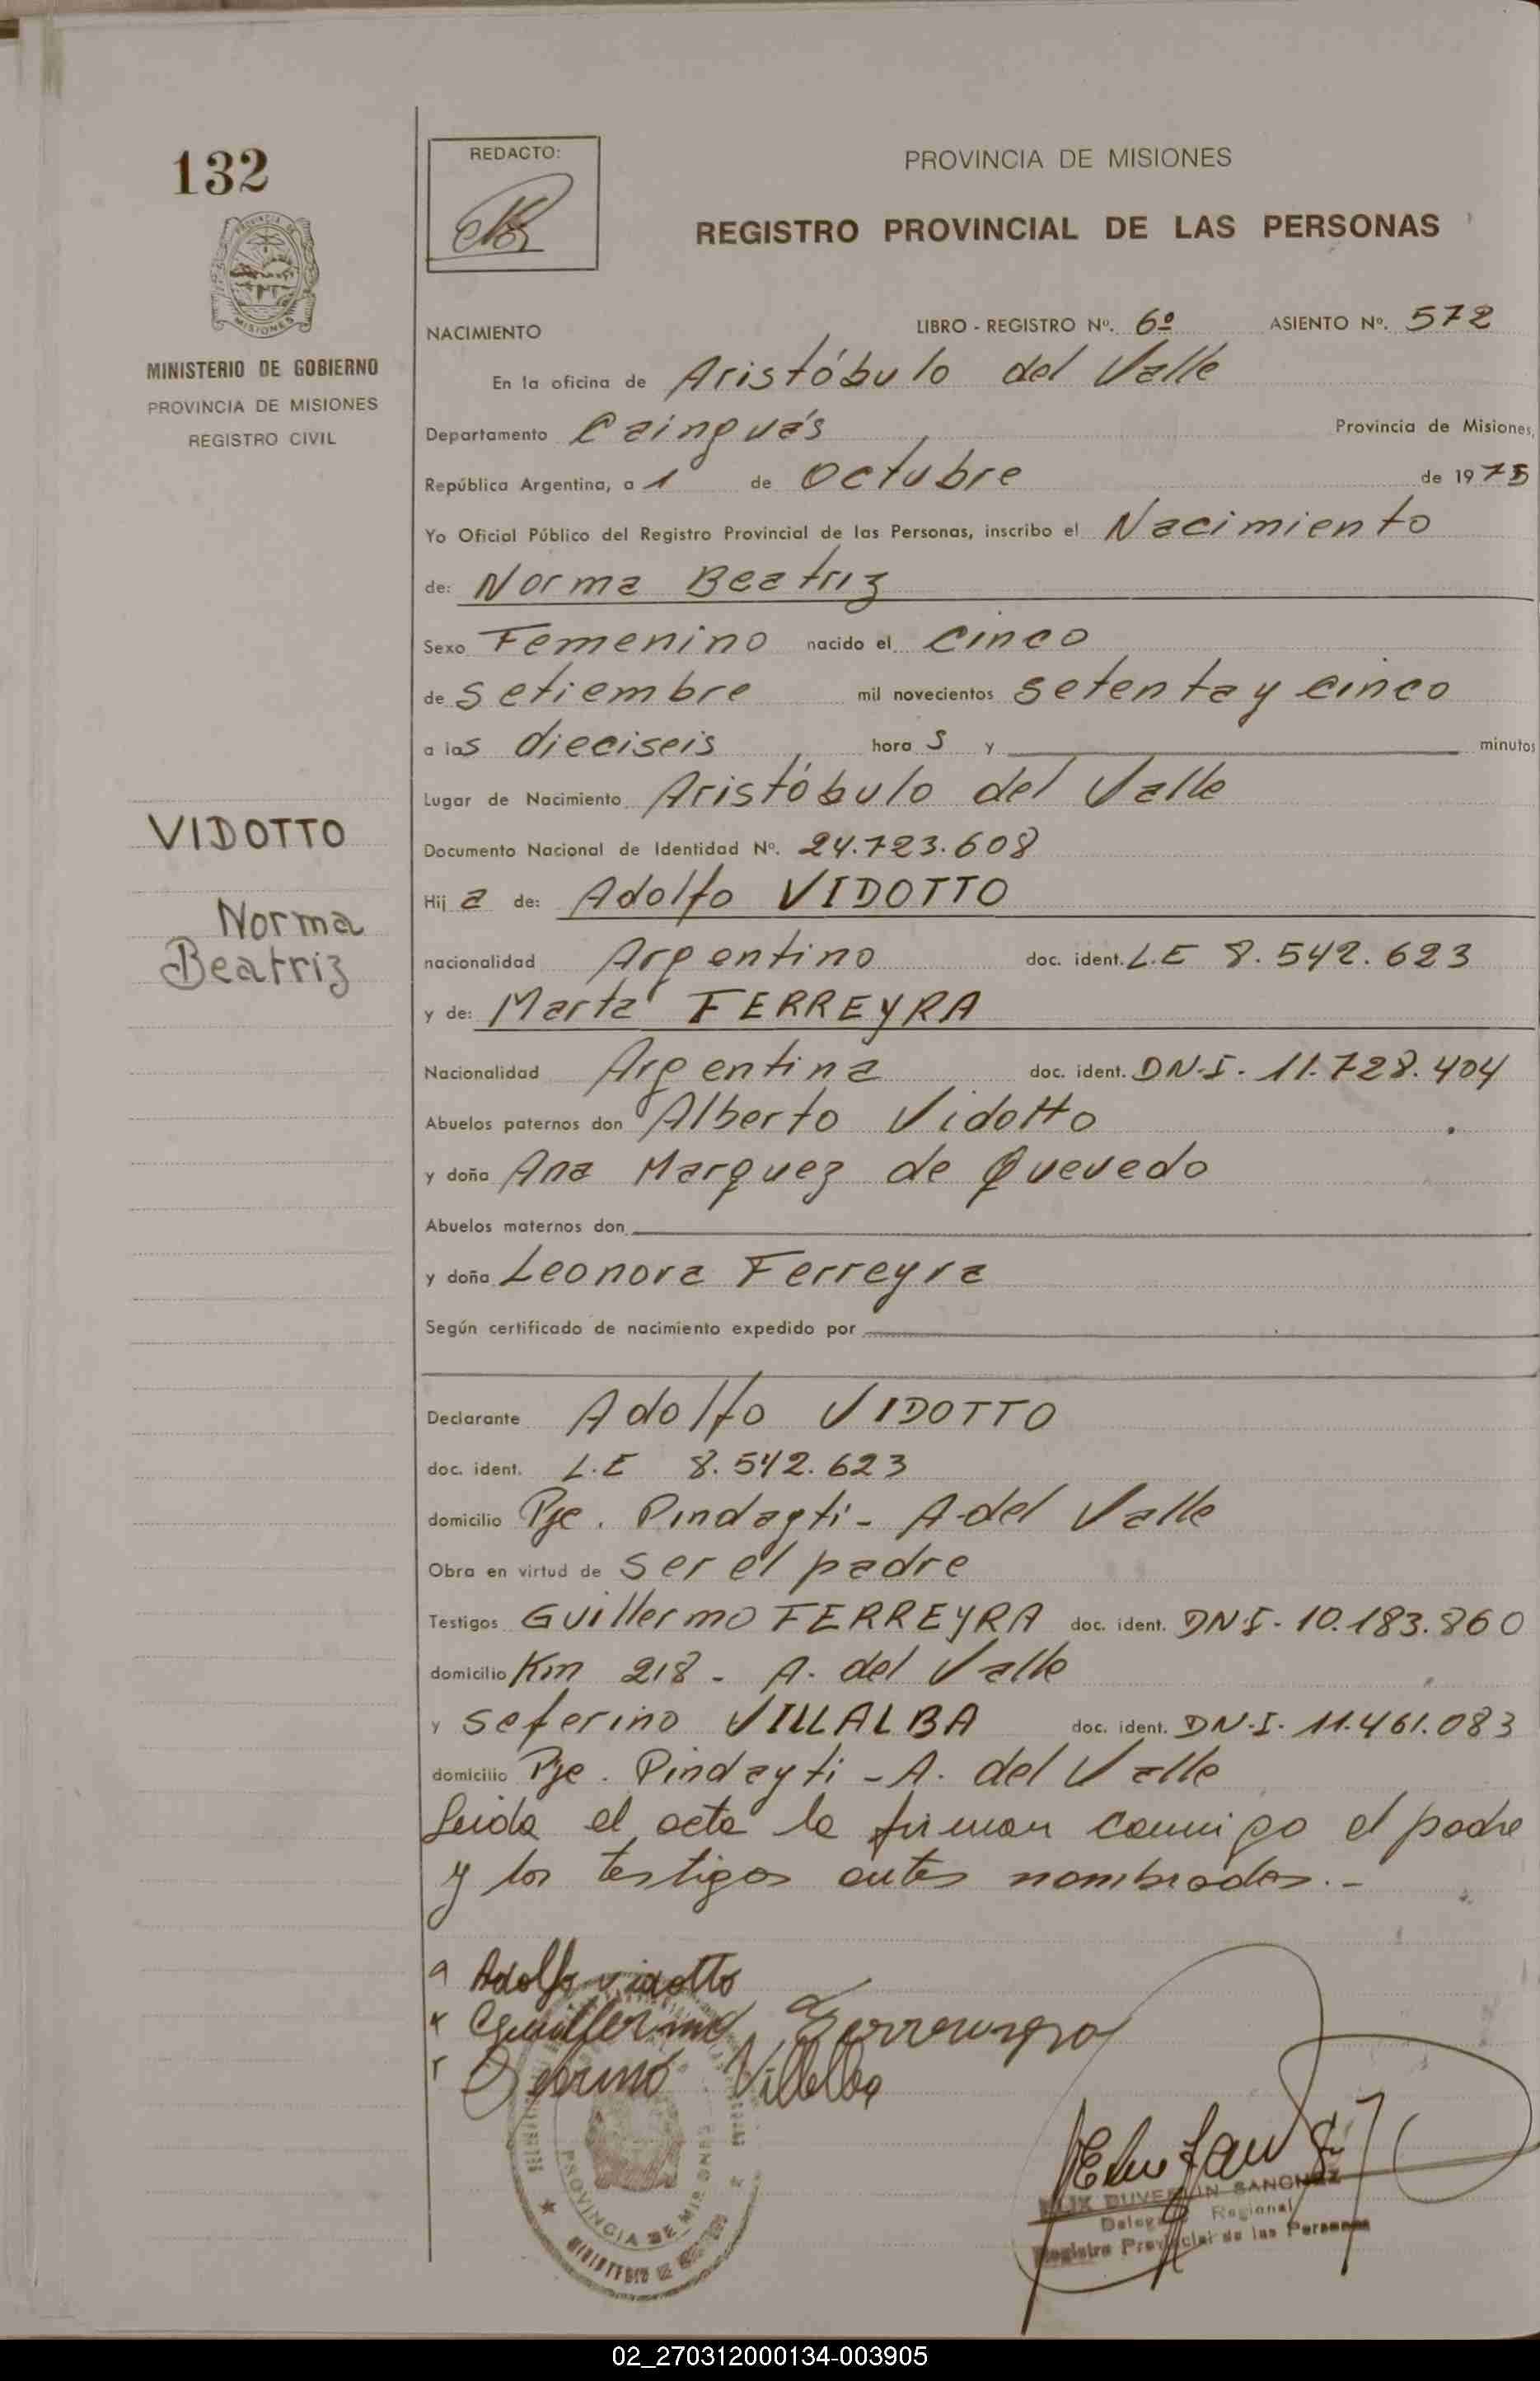 132
MINISTERIO DE GOBIERNO
PROVINCIA DE MISIONES
REGISTRO CIVIL
VIDOTTO
Norma
Beatriz
REDACTO:
PROVINCIA DE MISIONES
REGISTRO PROVINCIAL DE LAS PERSONAS
NACIMIENTO LIBRO - REGISTRO Nº. 6º ASIENTO Nº. 572
En la oficina de Aristóbulo del Valle
Departamento Cainguás Provincia de Misiones,
República Argentina, a 1 de Octubre de 1975
Yo Oficial Público del Registro Provincial de las Personas, inscribo el Nacimiento
de: Norma Beatriz
Sexo Femenino nacido el cinco
de setiembre mil novecientos setenta y cinco
a las dieciseis hora s y minutos
Lugar de Nacimiento Aristóbulo del Valle
Documento Nacional de Identidad Nº. 24.723.608
Hij a de: Adolfo VIDOTTO
nacionalidad Argentino doc. ident. L.E 8.542.623
y de: Marta FERREYRA
Nacionalidad Argentina doc. ident. DN.I. 11.728.404
Abuelos paternos don Alberto Vidotto
y doña Ana Marquez de Quevedo
Abuelos maternos don
y doña Leonora Ferreyra
Según certificado de nacimiento expedido por
Declarante Adolfo VIDOTTO
doc. ident. L.E 8.542.623
domicilio Pje. Pindayti - A. del Valle
Obra en virtud de ser el padre
Testigos Guillermo FERREYRA doc. ident. DNI. 10.183.860
domicilio Km 218 - A. del Valle
y Seferino VILLALBA doc. ident. DN.I. 11.461.083
domicilio Pje. Pindayti - A. del Valle
Leida el acta la firman conmigo el padre
y los testigos antes nombrados.-
Adolfo vidotto
Guillermo
Villalba
PROVINCIA DE MISIONES
SANCHEZ
Delegado Regional
Registro Provincial de las Personas
02_270312000134-003905